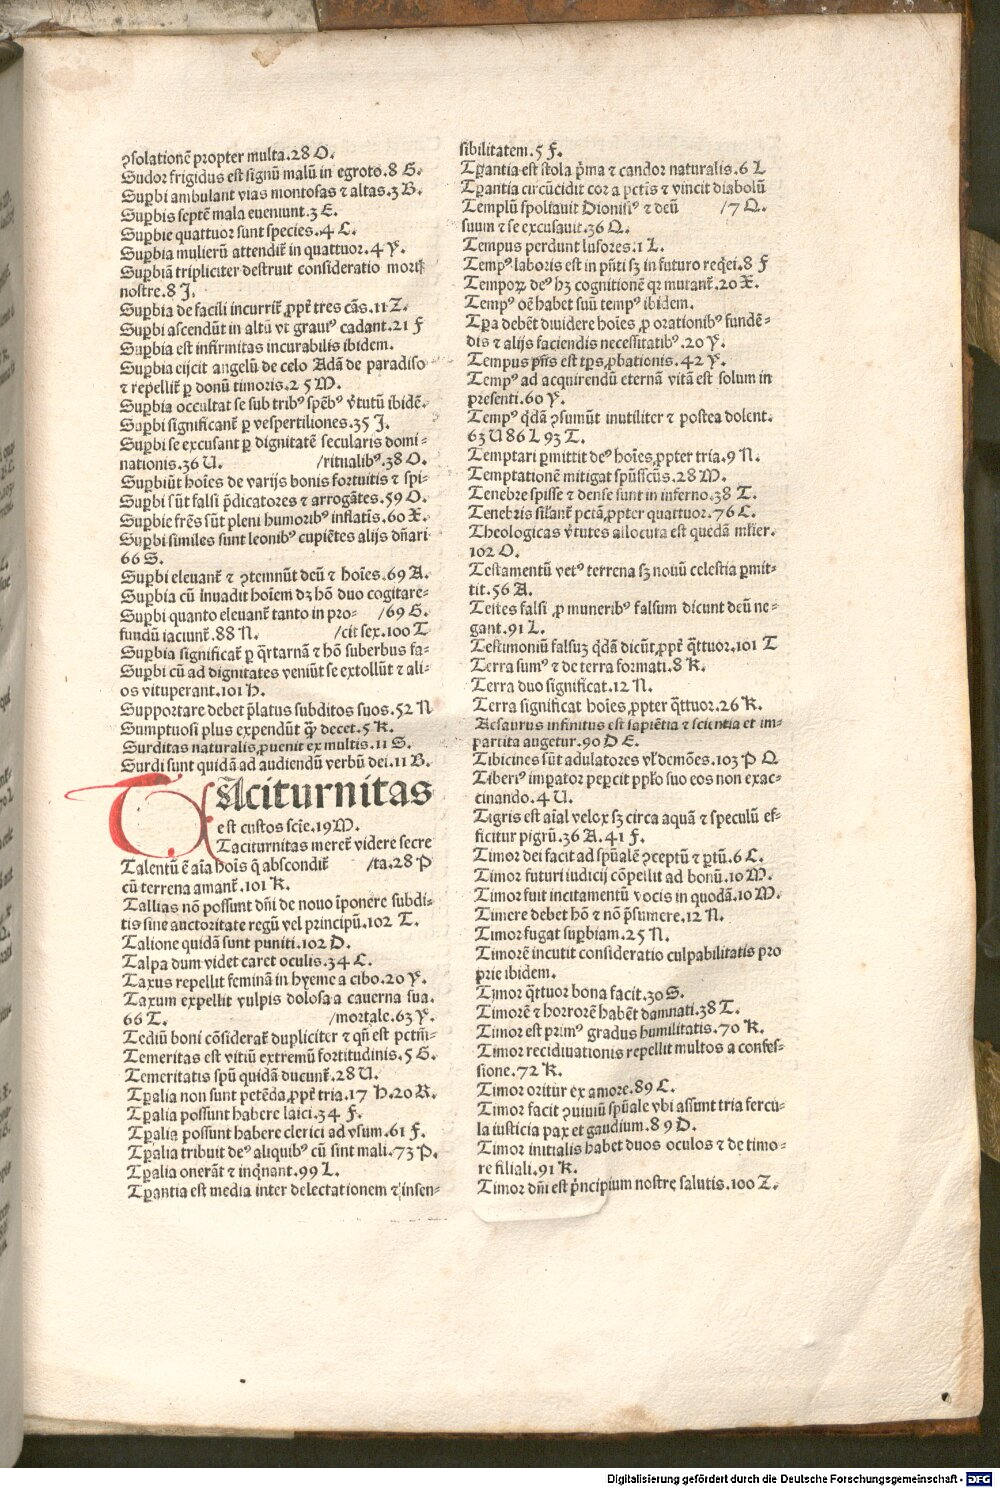 ꝯsolationē propter multa.28 O.
Sudor frigidus est signū malū in egroto.8 G.
Suꝑbi ambulant vias montosas ⁊ altas.3 B.
Suꝑbis septē mala eueniunt.3 E.
Suꝑbie quattuor sunt species.4 C.
Suꝑbia mulierū attendit᷑ in quattuor.4 Y.
Suꝑbiā tripliciter destruit consideratio mortꝭ
nostre.8 J.
Suꝑbia de facili incurrit᷑ ꝓpt᷑ tres cās.11 Z.
Suꝑbi ascendūt in altū vt grauiꝰ cadant.21 F
Suꝑbia est infirmitas incurabilis ibidem.
Suꝑbia eijcit angelū de celo Adā de paradiso
⁊ repellit᷑ ꝑ donū timoris.25 M.
Suꝑbia occultat se sub tribꝰ spēbꝰ v̄tutū ibidē.
Suꝑbi significant᷑ ꝑ vespertiliones.35 J.
Suꝑbi se excusant ꝑ dignitatē secularis domi-
nationis.36 U. /ritualibꝰ.38 O.
Suꝑbiūt hoīes de varijs bonis fortuitis ⁊ spi-
Suꝑbi sūt falsi p̄dicatores ⁊ arrogātes.59 O.
Suꝑbie frēs sūt pleni humoribꝰ inflatis.60 X.
Suꝑbi similes sunt leonibꝰ cupiētes alijs dn̄ari
66 S.
Suꝑbi eleuant᷑ ⁊ ꝯtemnūt deū ⁊ hoīes.69 A.
Suꝑbia cū inuadit hoīem dꝫ hō duo cogitare-
Suꝑbi quanto eleuant᷑ tanto in pro- /69 G.
fundū iaciunt᷑.88 N. /cit sex.100 T
Suꝑbia significat᷑ ꝑ q̄rtanā ⁊ hō suberbus fa-
Suꝑbi cū ad dignitates veniūt se extollūt ⁊ ali-
os vituperant.101 H.
Supportare debet p̄latus subditos suos.52 N
Sumptuosi plus expendūt qꝫ decet.5 K.
Surditas naturalis ꝓuenit ex multis.11 S.
Surdi sunt quidā ad audiendū verbū dei.11 B.
TAciturnitas
est custos scīe.19 M.
Taciturnitas meret᷑ videre secre
Talentū ē aīa hoīs q̄ abscondit᷑ /ta.28 P
cū terrena amant᷑.101 K.
Tallias nō possunt dn̄i de nouo īponere subdi-
tis sine auctoritate regū vel principū.102 T.
Talione quidā sunt puniti.102 D.
Talpa dum videt caret oculis.34 C.
Taxus repellit feminā in hyeme a cibo.20 Y.
Taxum expellit vulpis dolosa a cauerna sua.
66 T. /mortale.63 Y.
Tediū boni cōsiderat᷑ dupliciter ⁊ qn̄ est pctm̄-
Temeritas est vitiū extremū fortitudinis.5 G.
Temeritatis spū quidā ducunt᷑.28 U.
Tꝑalia non sunt petēda ꝓpt᷑ tria.17 H.20 R.
Tꝑalia possunt habere laici.34 F.
Tꝑalia possunt habere clerici ad vsum.61 F.
Tꝑalia tribuit deꝰ aliquibꝰ cū sint mali.73 P.
Tꝑalia onerāt ⁊ inq̇nant.99 L.
Tꝑantia est media inter delectationem ⁊ insen-
sibilitatem.5 F.
Tꝑantia est stola p̄ma ⁊ candor naturalis.6 L
Tꝑantia circūcidit cor a pctīs ⁊ vincit diabolū
Templū spoliauit Dionisiꝰ ⁊ deū /7 Q.
suum ⁊ se excusauit.36 Q.
Tempus perdunt lusores.1 L.
Tempꝰ laboris est in pn̄ti sꝫ in futuro reqͥei.8 F
Tempoꝝ deꝰ hꝫ cognitionē qꝛ mutant᷑.20 X.
Tempꝰ oē habet suū tempꝰ ibidem.
Tꝑa debēt diuidere hoīes ꝓ orationibꝰ fundē-
dis ⁊ alijs faciendis necessitatibꝰ.20 Y.
Tempus pn̄s est tꝑs ꝓbationis.42 Y.
Tempꝰ ad acquirendū eternā vitā est solum in
presenti.60 Y.
Tempꝰ qͥdā ꝯsumūt inutiliter ⁊ postea dolent.
63 U 86 L 93 T.
Temptari ꝑmittit deꝰ hoīes ꝓpter tria.9 N.
Temptationē mitigat spūsscūs.28 M.
Tenebre spisse ⁊ dense sunt in inferno.38 T.
Tenebris silant᷑ pctā ꝓpter quattuor.76 C.
Theologicas v̄tutes allocuta est quedā mlier.
102 O.
Testamentū vetꝰ terrena sꝫ nouū celestia ꝑmit-
tit.56 A.
Testes falsi ꝓ muneribꝰ falsum dicunt deū ne-
gant.91 L.
Testimoniū falsuꝫ qͥdā dicūt ꝓpt᷑ q̄ttuor.101 T
Terra sumꝰ ⁊ de terra formati.8 K.
Terra duo significat.12 N.
Terra significat hoīes ꝓpter q̄ttuor.26 K.
Tesaurus infinitus est sapiētia ⁊ scientia et im-
partita augetur.90 D E.
Tibicines sūt adulatores vl̓ demōes.103 P Q
Tiberiꝰ imꝑator peꝑcit ppl̓o suo eos non exac-
tinando.4 U.
Tigris est aīal velox sꝫ circa aquā ⁊ speculū ef-
ficitur pigrū.36 A.41 F.
Timor dei facit ad spūalē ꝯceptū ⁊ ꝑtū.6 C.
Timor futuri iudicij cōpellit ad bonū.10 M.
Timor fuit incitamentū vocis in quodā.10 M.
Timere debet hō ⁊ nō p̄sumere.12 N.
Timor fugat suꝑbiam.25 N.
Timorē incutit consideratio culpabilitatis pro
prie ibidem.
Timor q̄ttuor bona facit.30 S.
Timorē ⁊ horrorē habēt damnati.38 T.
Timor est primꝰ gradus humilitatis.70 K.
Timor recidiuationis repellit multos a confes-
sione.72 K.
Timor oritur ex amore.89 C.
Timor facit ꝯuiuiū spūale vbi assunt tria fercu-
la iusticia pax et gaudium.89 D.
Timor initialis habet duos oculos ⁊ de timo-
re filiali.91 K.
Timor dn̄i est p̄ncipium nostre salutis.100 Z.
Digitalisierung gefördert durch die Deutsche Forschungsgemeinschaft - DFG